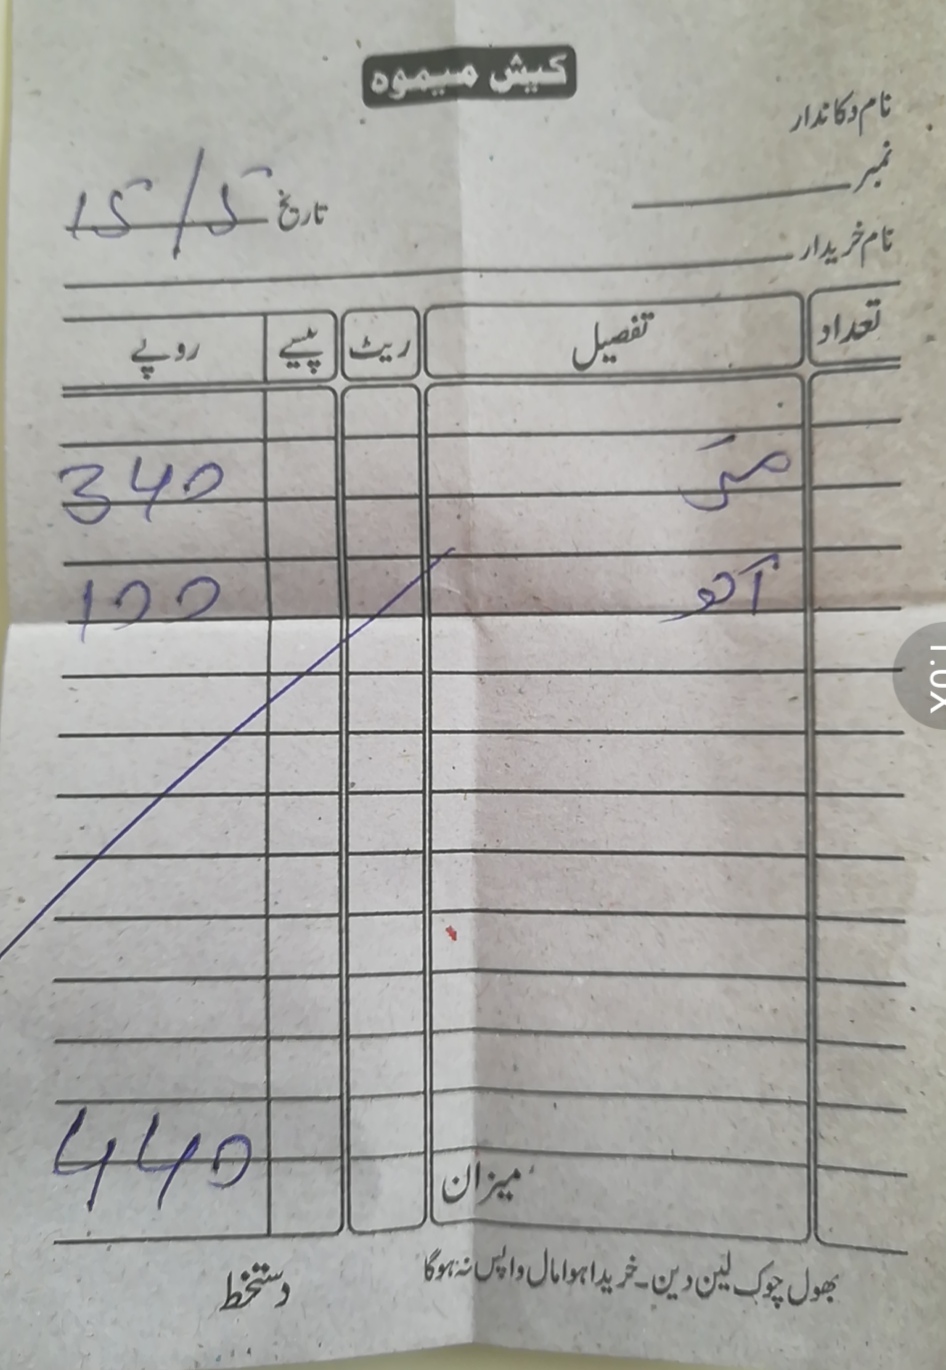 کیش میمو
نام دکاندار
نمبر
تاریخ 15/5
نام خریدار
تعداد تفصیل ریٹ پیسے روپے
340
آلو 100
میزان 440
بھول چوک لین دین۔ خریدا ہوا مال واپس نہ ہوگا
دستخط
1.0X